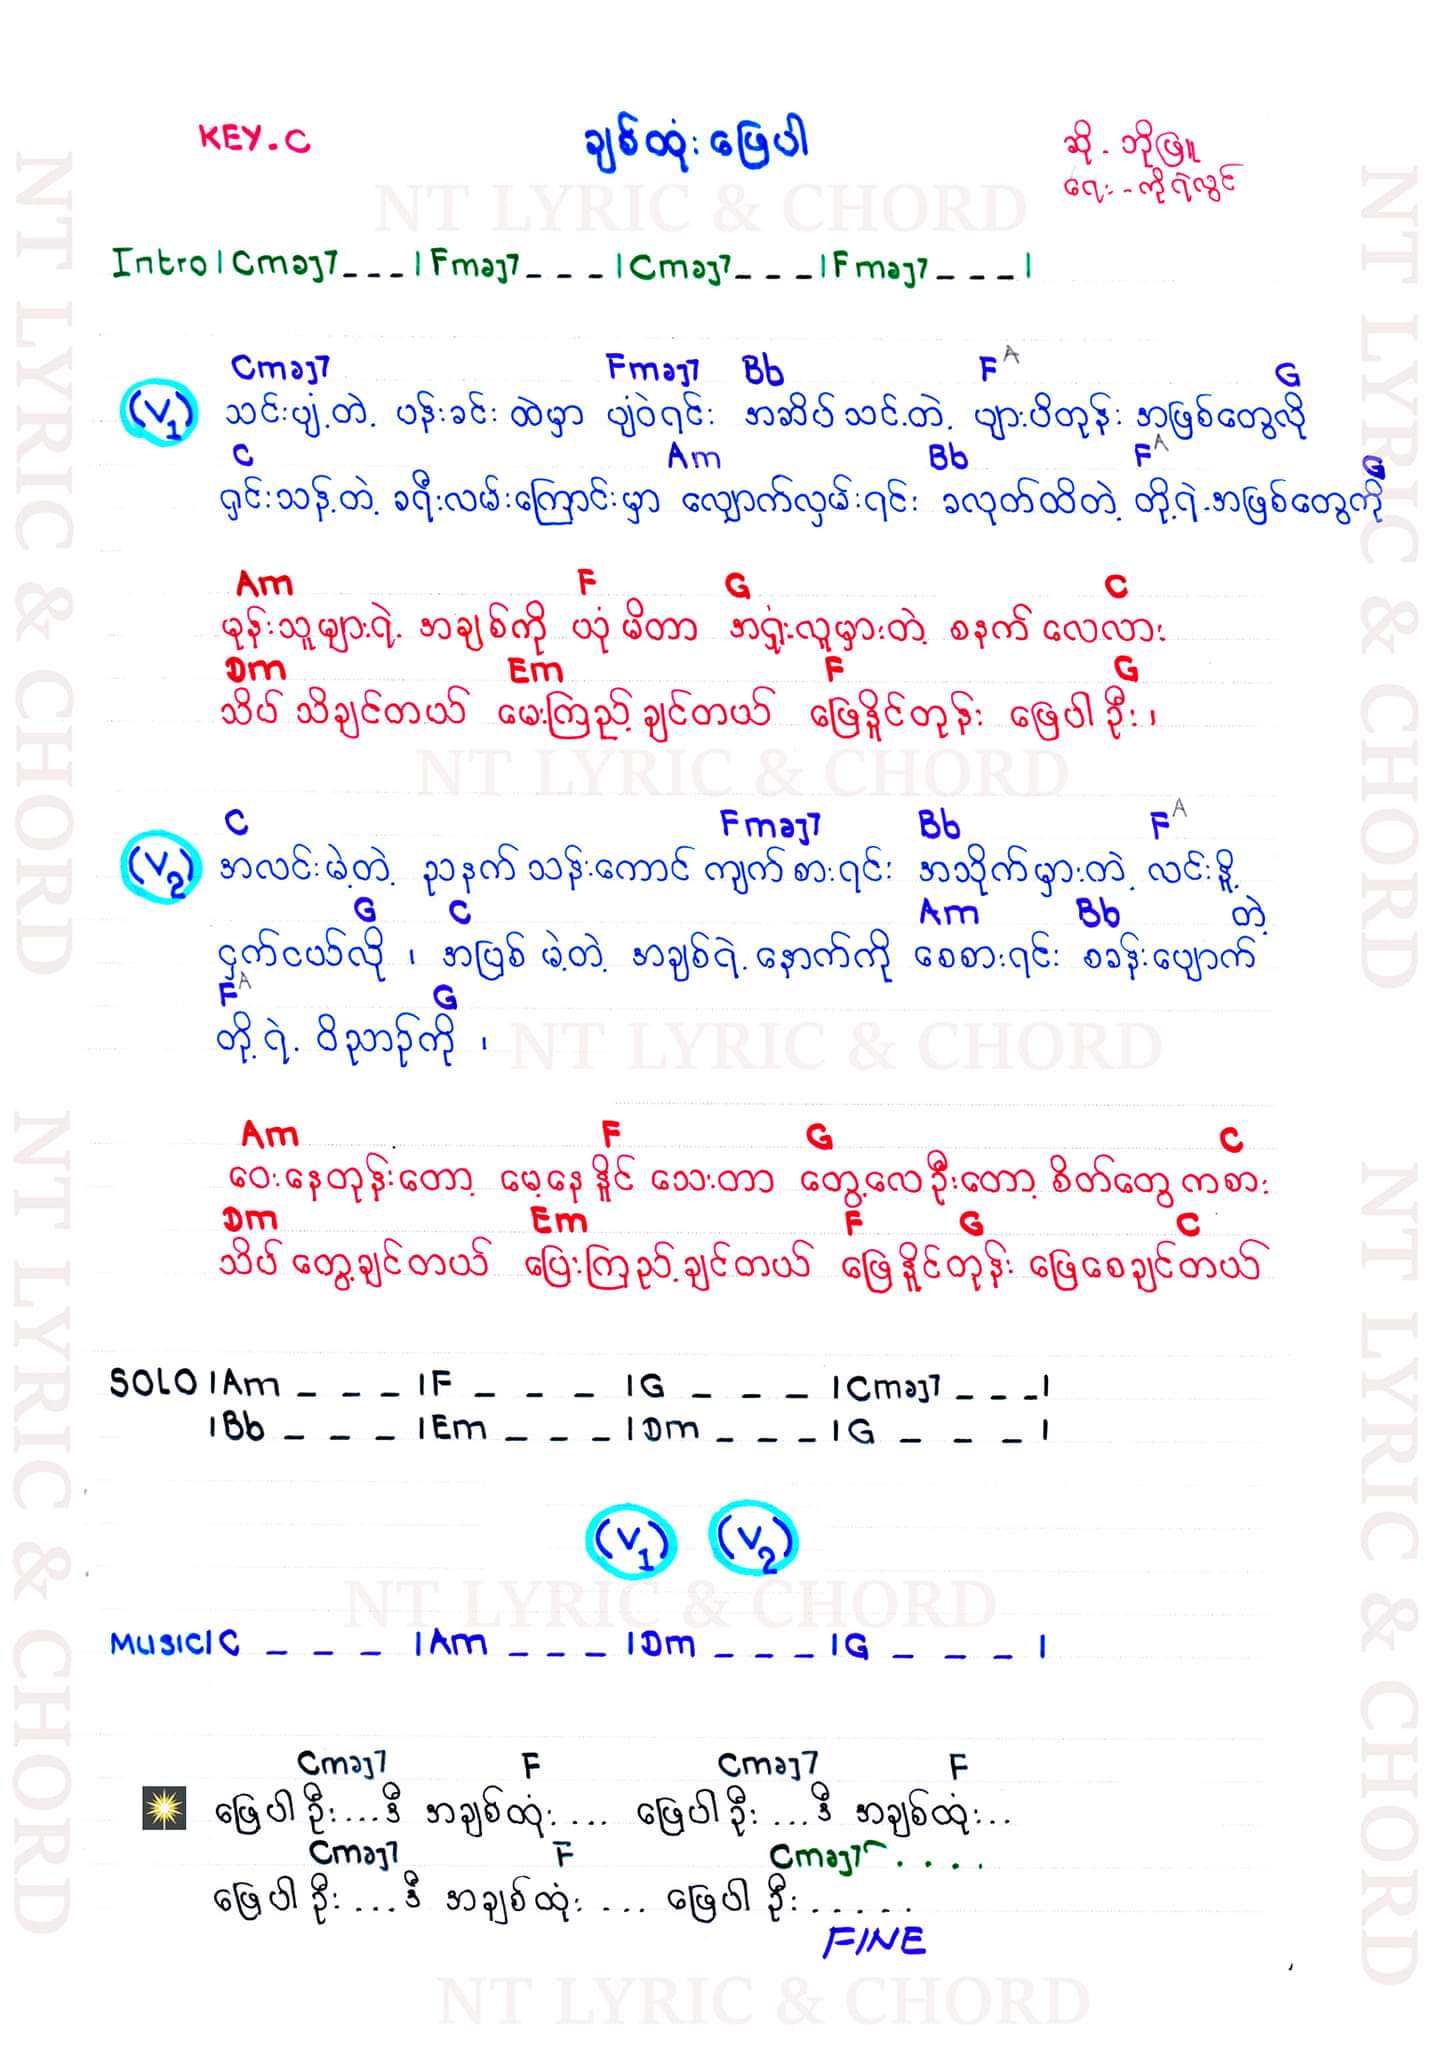 KEY.C
ချစ်ထုံးဖြေပါ
ဆို - ဘိုဖြူ
ရေး - ကိုရဲလွင်
NT LYRIC & CHORD
Intro | Cmaj7 _ _ _ | Fmaj7 _ _ _ | Cmaj7 _ _ _ | Fmaj7 _ _ _ |
Cmaj7 Fmaj7 Bb F A G
(V1) သင်းပျံ့တဲ့ ပန်းခင်း ထဲမှာ ပျံဝဲရင်း အဆိပ်သင့်တဲ့ ပျားပိတုန်း အဖြစ်တွေလို
C Am Bb F A G
ရှင်းသန့်တဲ့ ခရီးလမ်းကြောင်းမှာ လျှောက်လှမ်းရင်း ခလုတ်ထိတဲ့ တို့ရဲ့အဖြစ်တွေကို
Am F G C
မုန်းသူများရဲ့ အချစ်ကို ယုံမိတာ အရှုံးလူမှားတဲ့ စနက်လေလား
Dm Em F G
သိပ်သိချင်တယ် မေးကြည့်ချင်တယ် ဖြေနိုင်တုန်း ဖြေပါဦး ၊
NT LYRIC & CHORD
C Fmaj7 Bb F A
(V2) အလင်းမဲ့တဲ့ ညနက်သန်းကောင် ကျက်စားရင်း အသိုက်မှားတဲ့ လင်းနို့
G C Am Bb တဲ့
ငှက်ငယ်လို ၊ အဖြစ်မဲ့တဲ့ အချစ်ရဲ့နောက်ကို စေစားရင်း စခန်းပျောက်
F A G
တို့ရဲ့ ဝိညာဉ်ကို ၊
NT LYRIC & CHORD
Am F G C
ဝေးနေတုန်းတော့ မေ့နေနိူင်သေးတာ တွေ့လေဦးတော့ စိတ်တွေကစား
Dm Em F G C
သိပ်တွေ့ချင်တယ် ပြေးကြည့်ချင်တယ် ဖြေနိူင်တုန်း ဖြေစေချင်တယ်
SOLO | Am _ _ _ | F _ _ _ | G _ _ _ | Cmaj7 _ _ _ |
| Bb _ _ _ | Em _ _ _ | Dm _ _ _ | G _ _ _ |
(V1) (V2)
NT LYRIC & CHORD
MUSIC | C _ _ _ | Am _ _ _ | Dm _ _ _ | G _ _ _ |
Cmaj7 F Cmaj7 F
ဖြေပါဦး...ဒီ အချစ်ထုံး... ဖြေပါဦး...ဒီ အချစ်ထုံး...
Cmaj7 F Cmaj7 . . . .
ဖြေပါဦး...ဒီ အချစ်ထုံး ... ဖြေပါဦး.....
FINE
NT LYRIC & CHORD
NT LYRIC & CHORD
NT LYRIC & CHORD
NT LYRIC & CHORD
NT LYRIC & CHORD